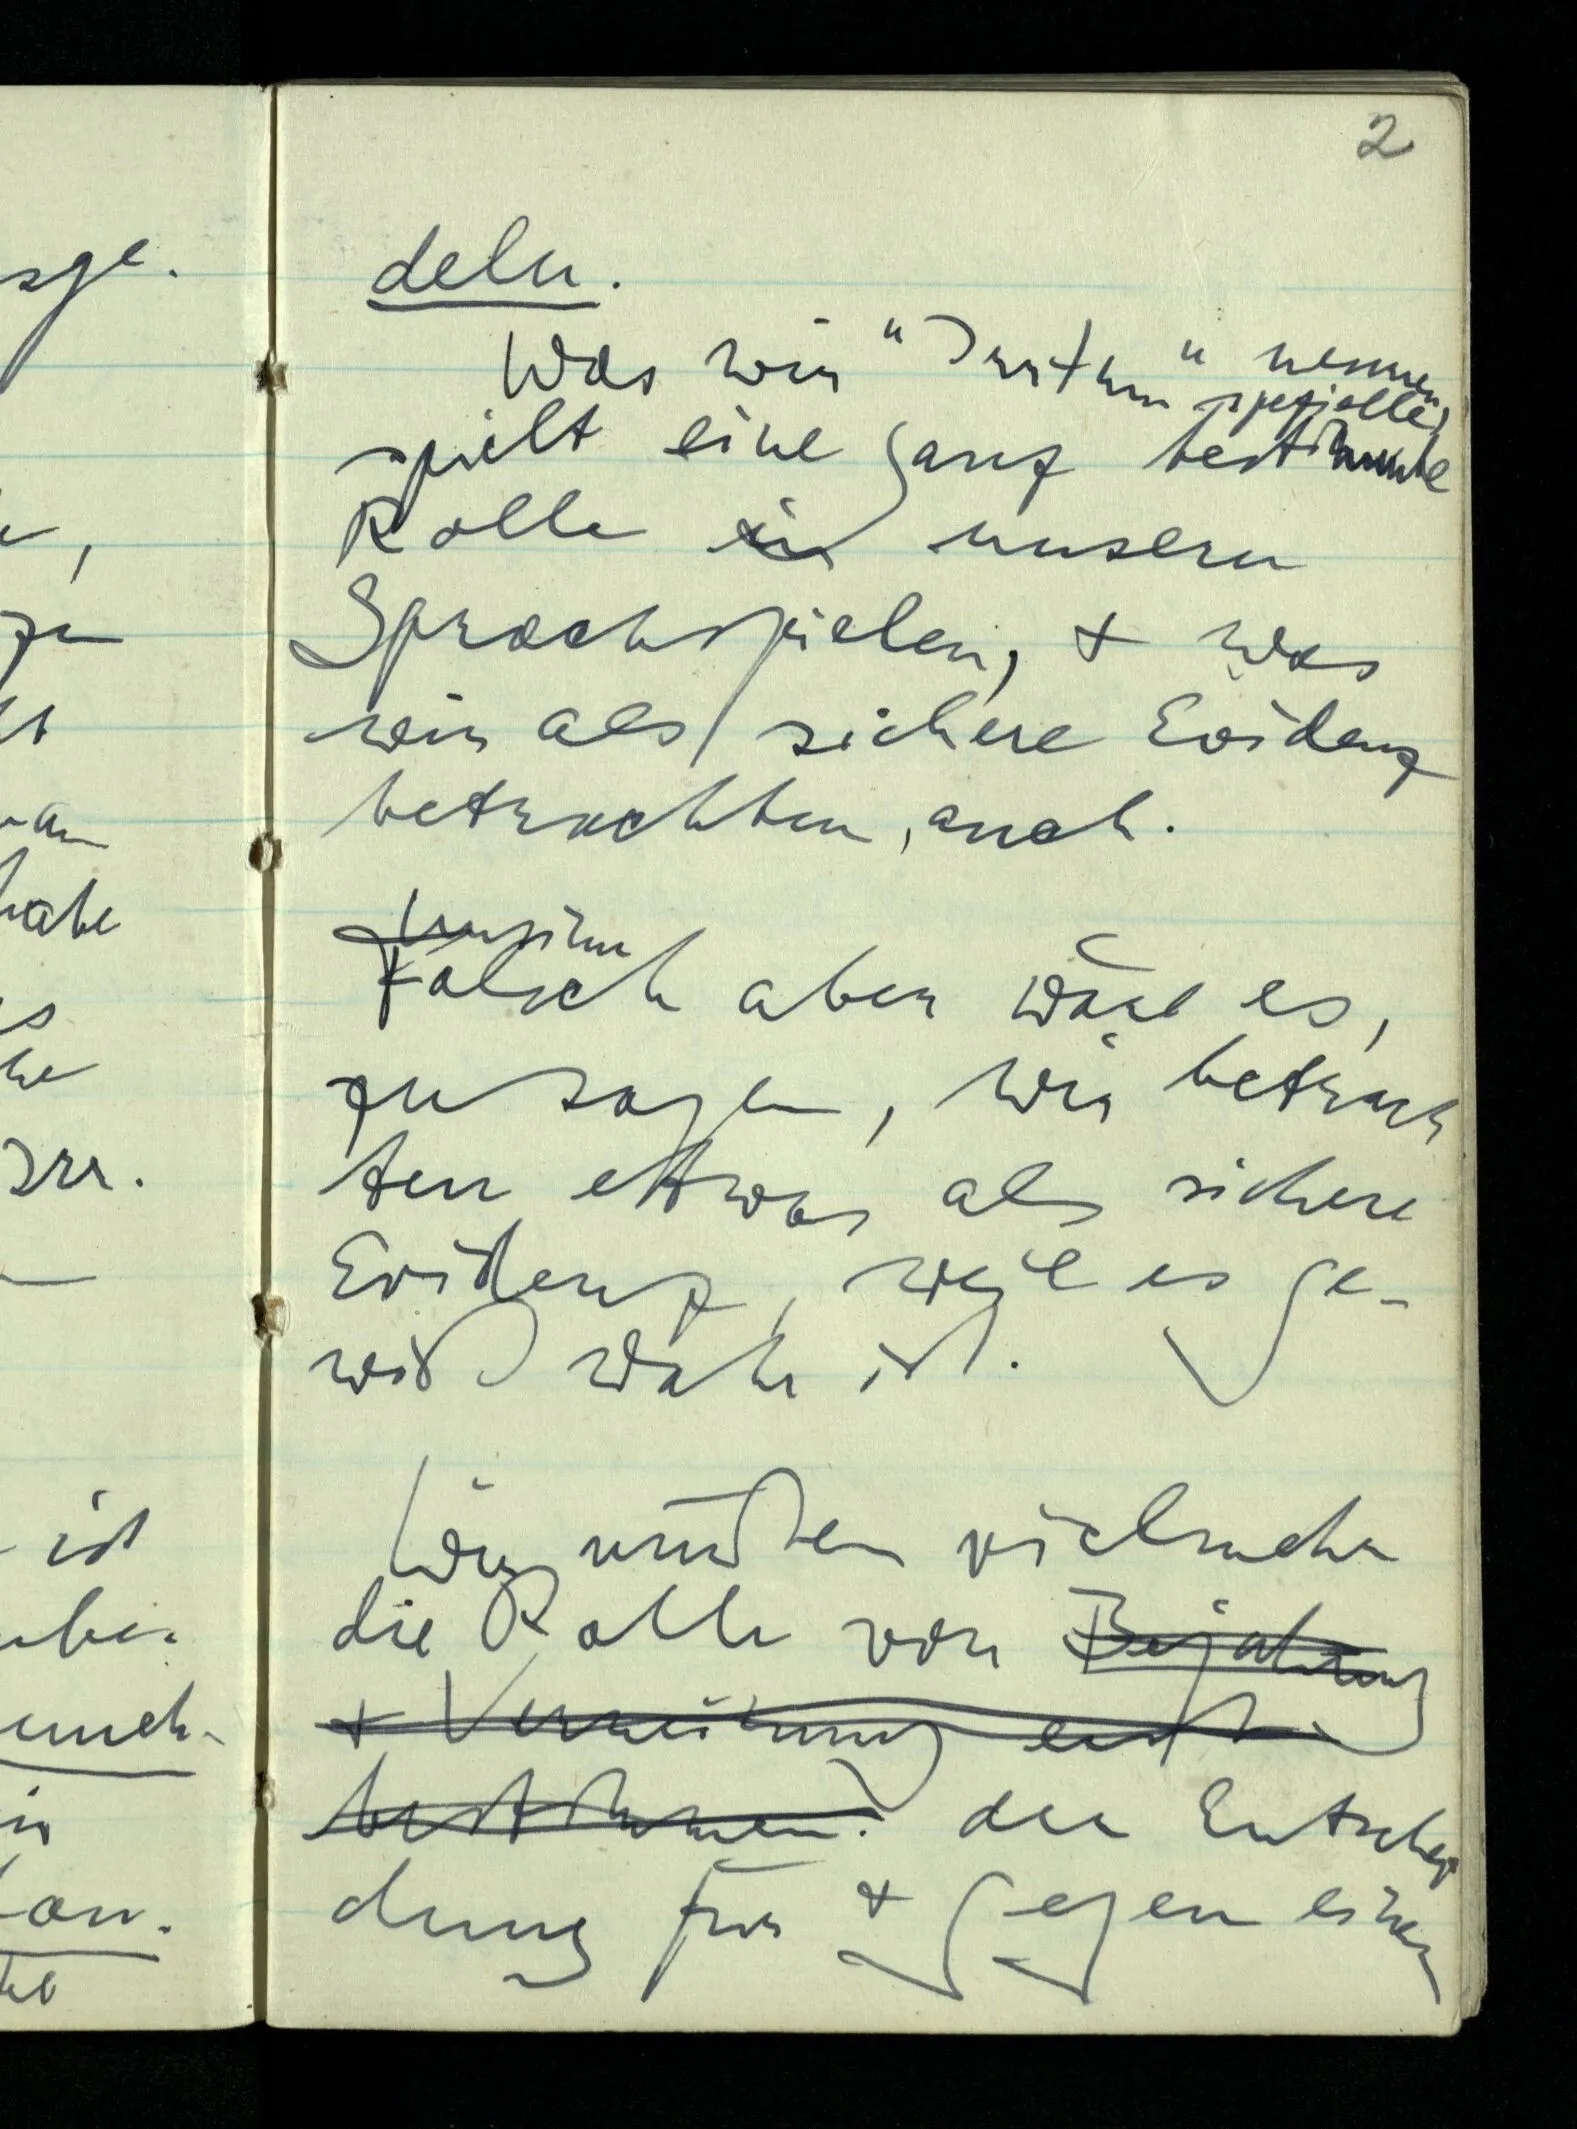 2
deln.
Was wir "Irrtum" nennen
spezielle
spielt eine ganz bestimmte
Rolle in unsern
Sprachspielen, + was
wir als sichere Evidenz
betrachten, auch.
Unsinn
Falsch aber wäre es,
zu sagen, wir betrach
ten etwas als sichere
Evidenz, weil es ge-
wiß wahr ist.
Wir müßen vielmehr
die Rolle von Bejahung
+ Verneinung erst
bestimmen. der Entschei
dung für + gegen einen
sge.
habe
Irr.
ist